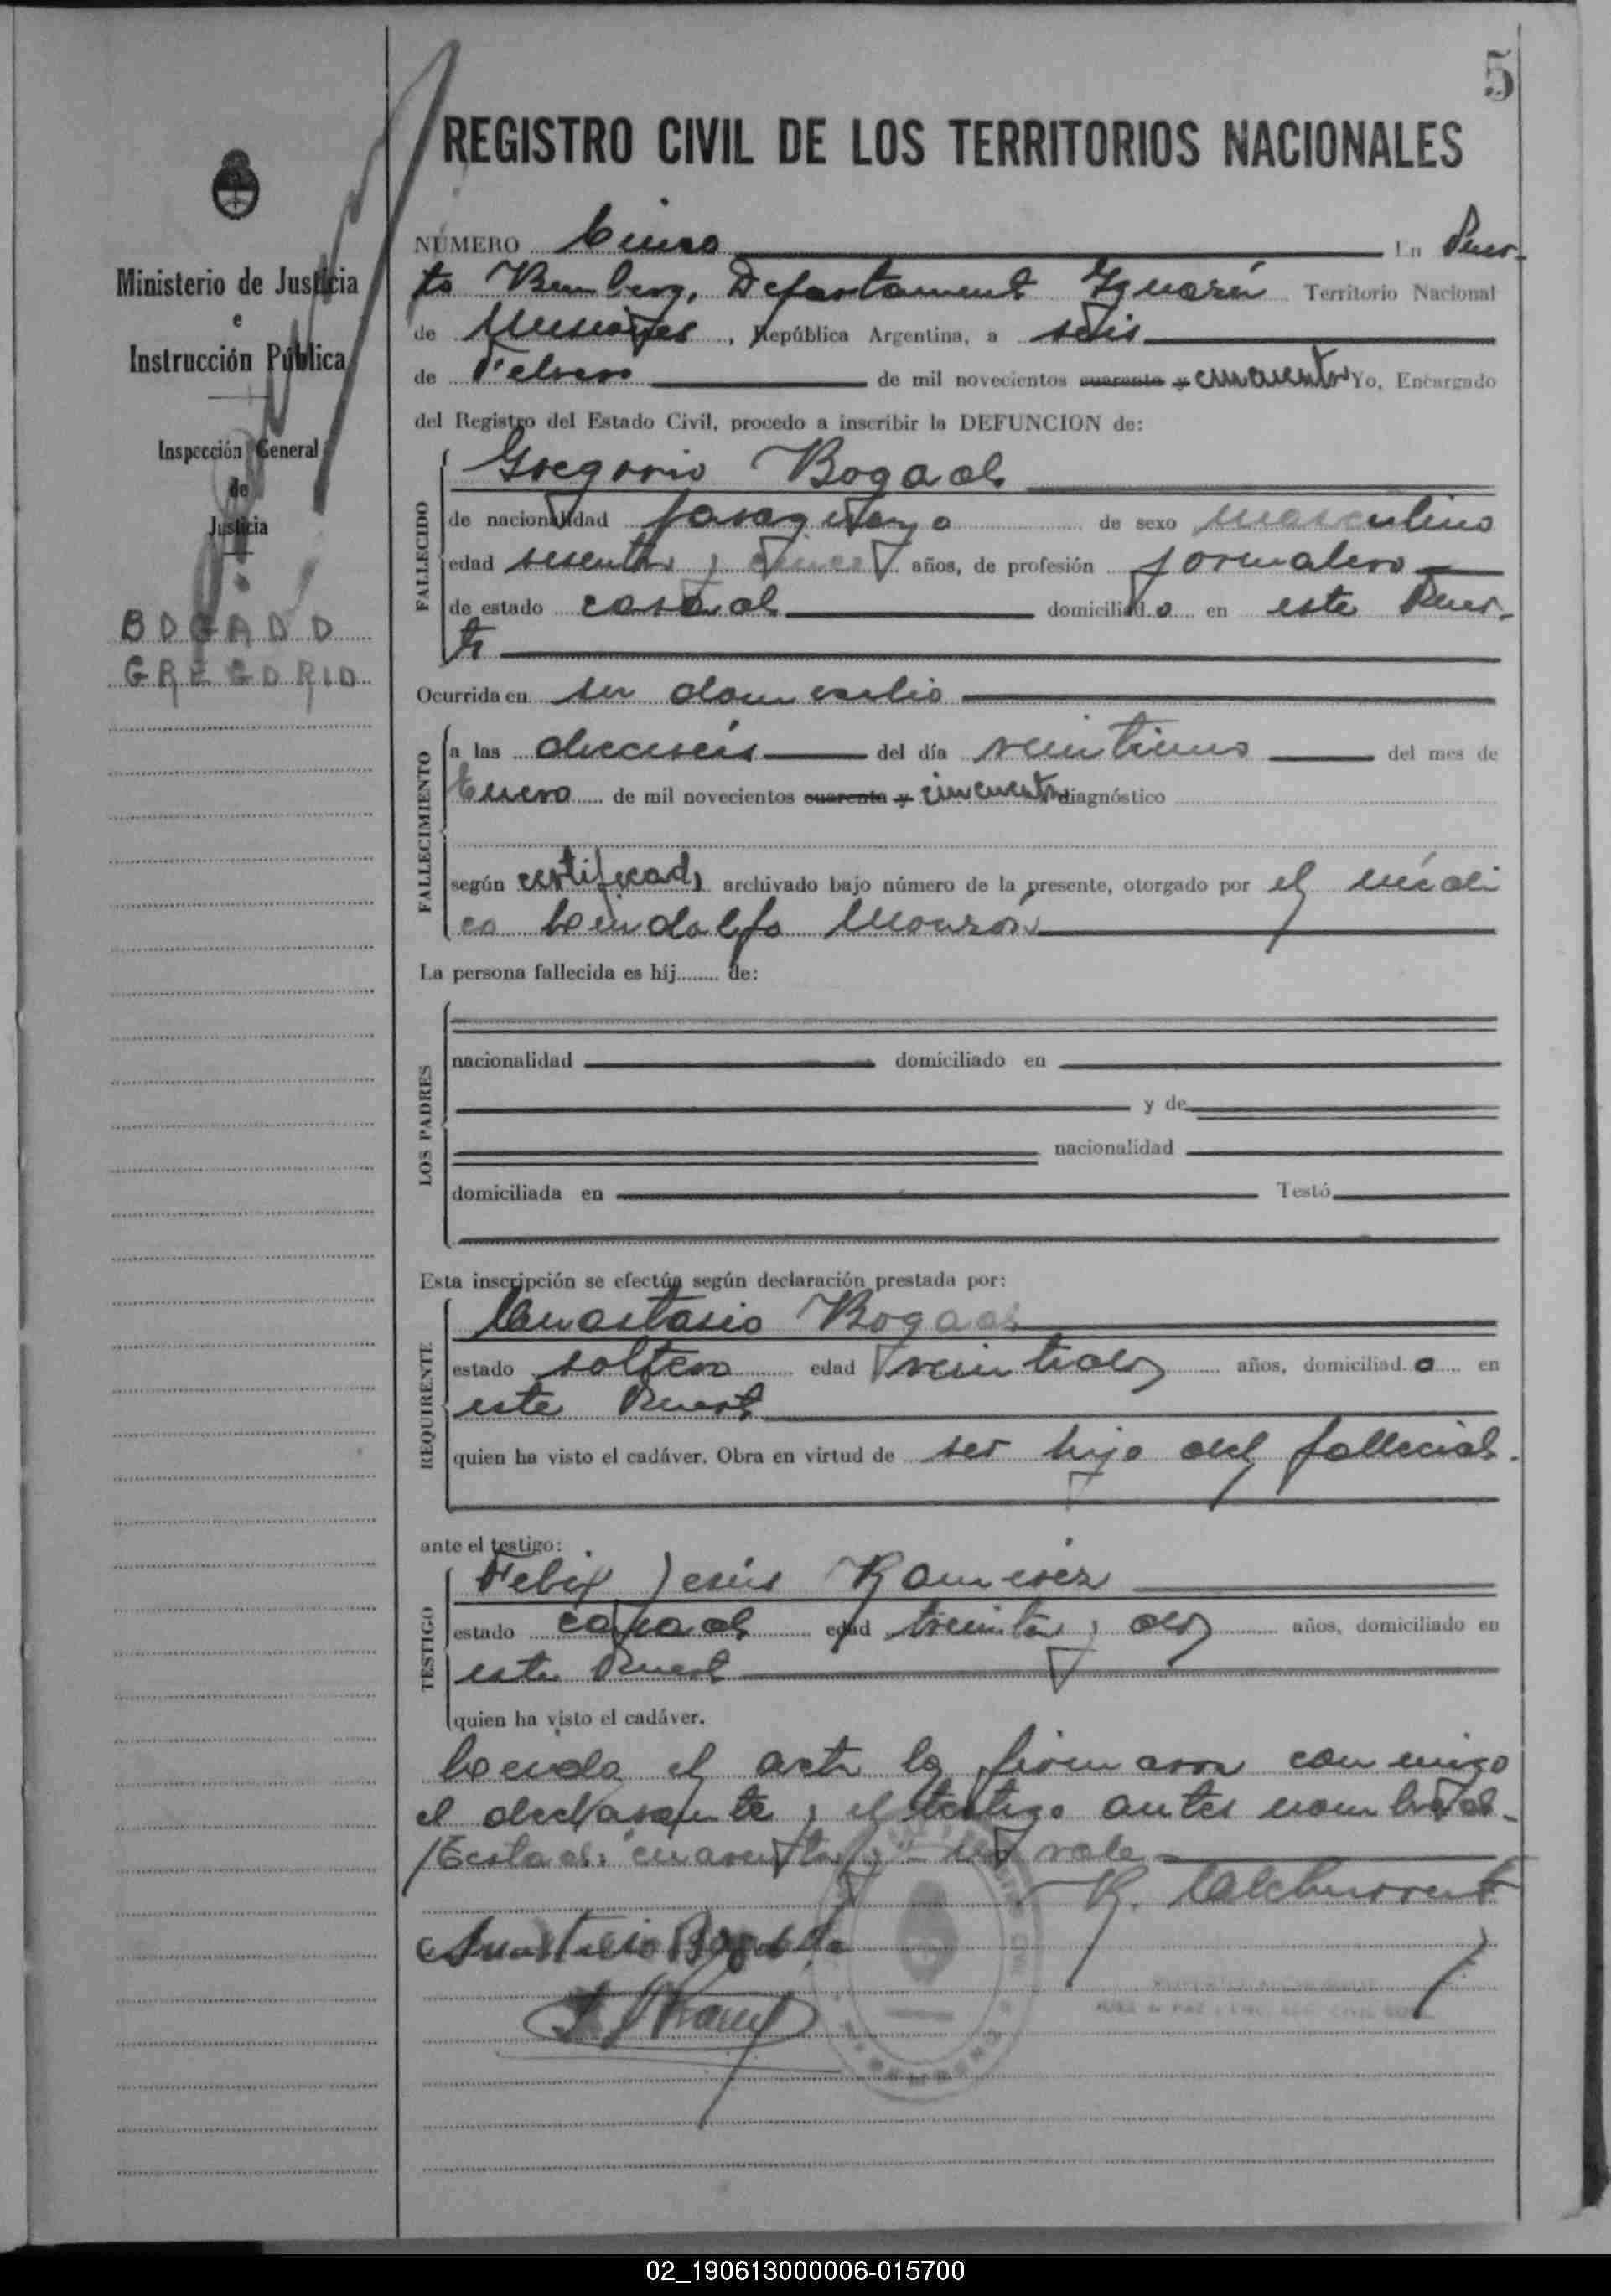 5
REGISTRO CIVIL DE LOS TERRITORIOS NACIONALES
Ministerio de Justicia
e
Instrucción Pública
Inspección General
de
Justicia
BOGADO
GREGORIO
NÚMERO Cinco En Puer-
to Bemberg, Departamento Iguazú Territorio Nacional
de Misiones, República Argentina, a seis
de Febrero de mil novecientos cuarenta y cincuenta Yo, Encargado
del Registro del Estado Civil, procedo a inscribir la DEFUNCION de:
FALLECIDO
Gregorio Bogado
de nacionalidad paraguayo de sexo masculino
edad sesenta y cinco años, de profesión jornalero
de estado casado domiciliado en este Puer-
to
Ocurrida en su domicilio
FALLECIMIENTO
a las dieciseis del día veintiuno del mes de
Enero de mil novecientos cuarenta y cincuenta diagnóstico
según certificado archivado bajo número de la presente, otorgado por el médi
co Lindolfo Monzón
La persona fallecida es hij........ de:
LOS PADRES
nacionalidad domiciliado en
y de
nacionalidad
domiciliada en Testó
Esta inscripción se efectúa según declaración prestada por:
REQUIRENTE
Anastasio Bogado
estado soltero edad veintidos años, domiciliado en
este Puerto
quien ha visto el cadáver. Obra en virtud de ser hijo del fallecido.
ante el testigo:
TESTIGO
Felix Jesús Ramirez
estado casado edad treinta y dos años, domiciliado en
este Puerto
quien ha visto el cadáver.
Leida el acta la firmaron conmigo
el declarante y el testigo antes nombrados-
/Testado: "cuarenta y"- no vale
Anastacio Bogado
02_190613000006-015700